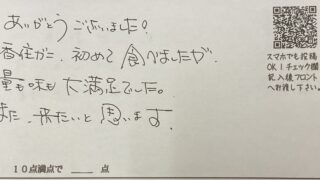 ありがとうございました!
香住がに、初めて食べましたが、
量も味も大満足でした。
また、来たいと思います。
スマホでも投稿
OK!チェック欄
記入後フロント
へお渡し下さい。
10点満点で ____ 点